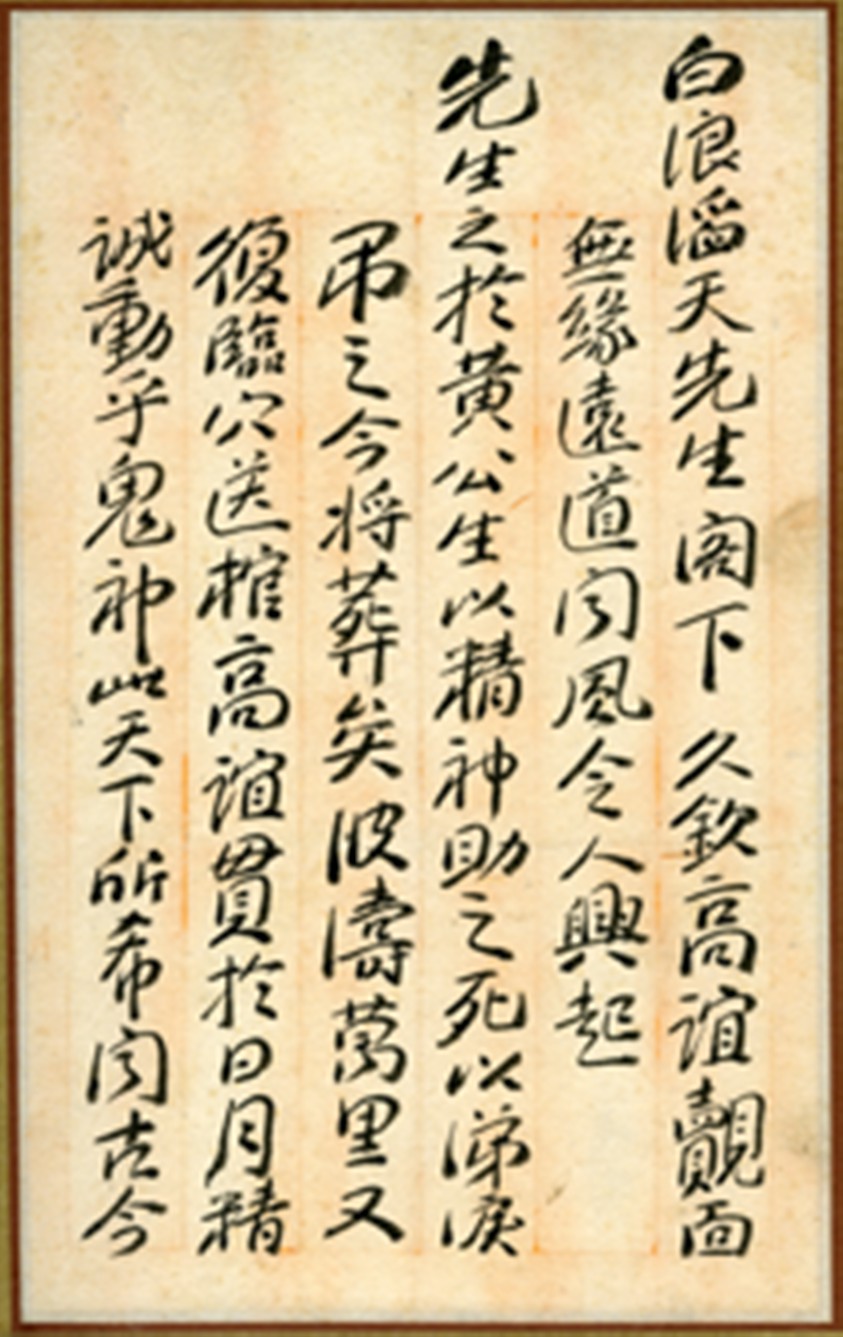 白浪滔天先生阁下久欽高誼覿面
無緣遠道闻風令人興起
先生之於黄公生以精神助之死以涕淚
吊之今将葬矣波濤萬里又
復臨穴送棺高誼貫於日月精
誠動乎鬼神此天下所希闻古今